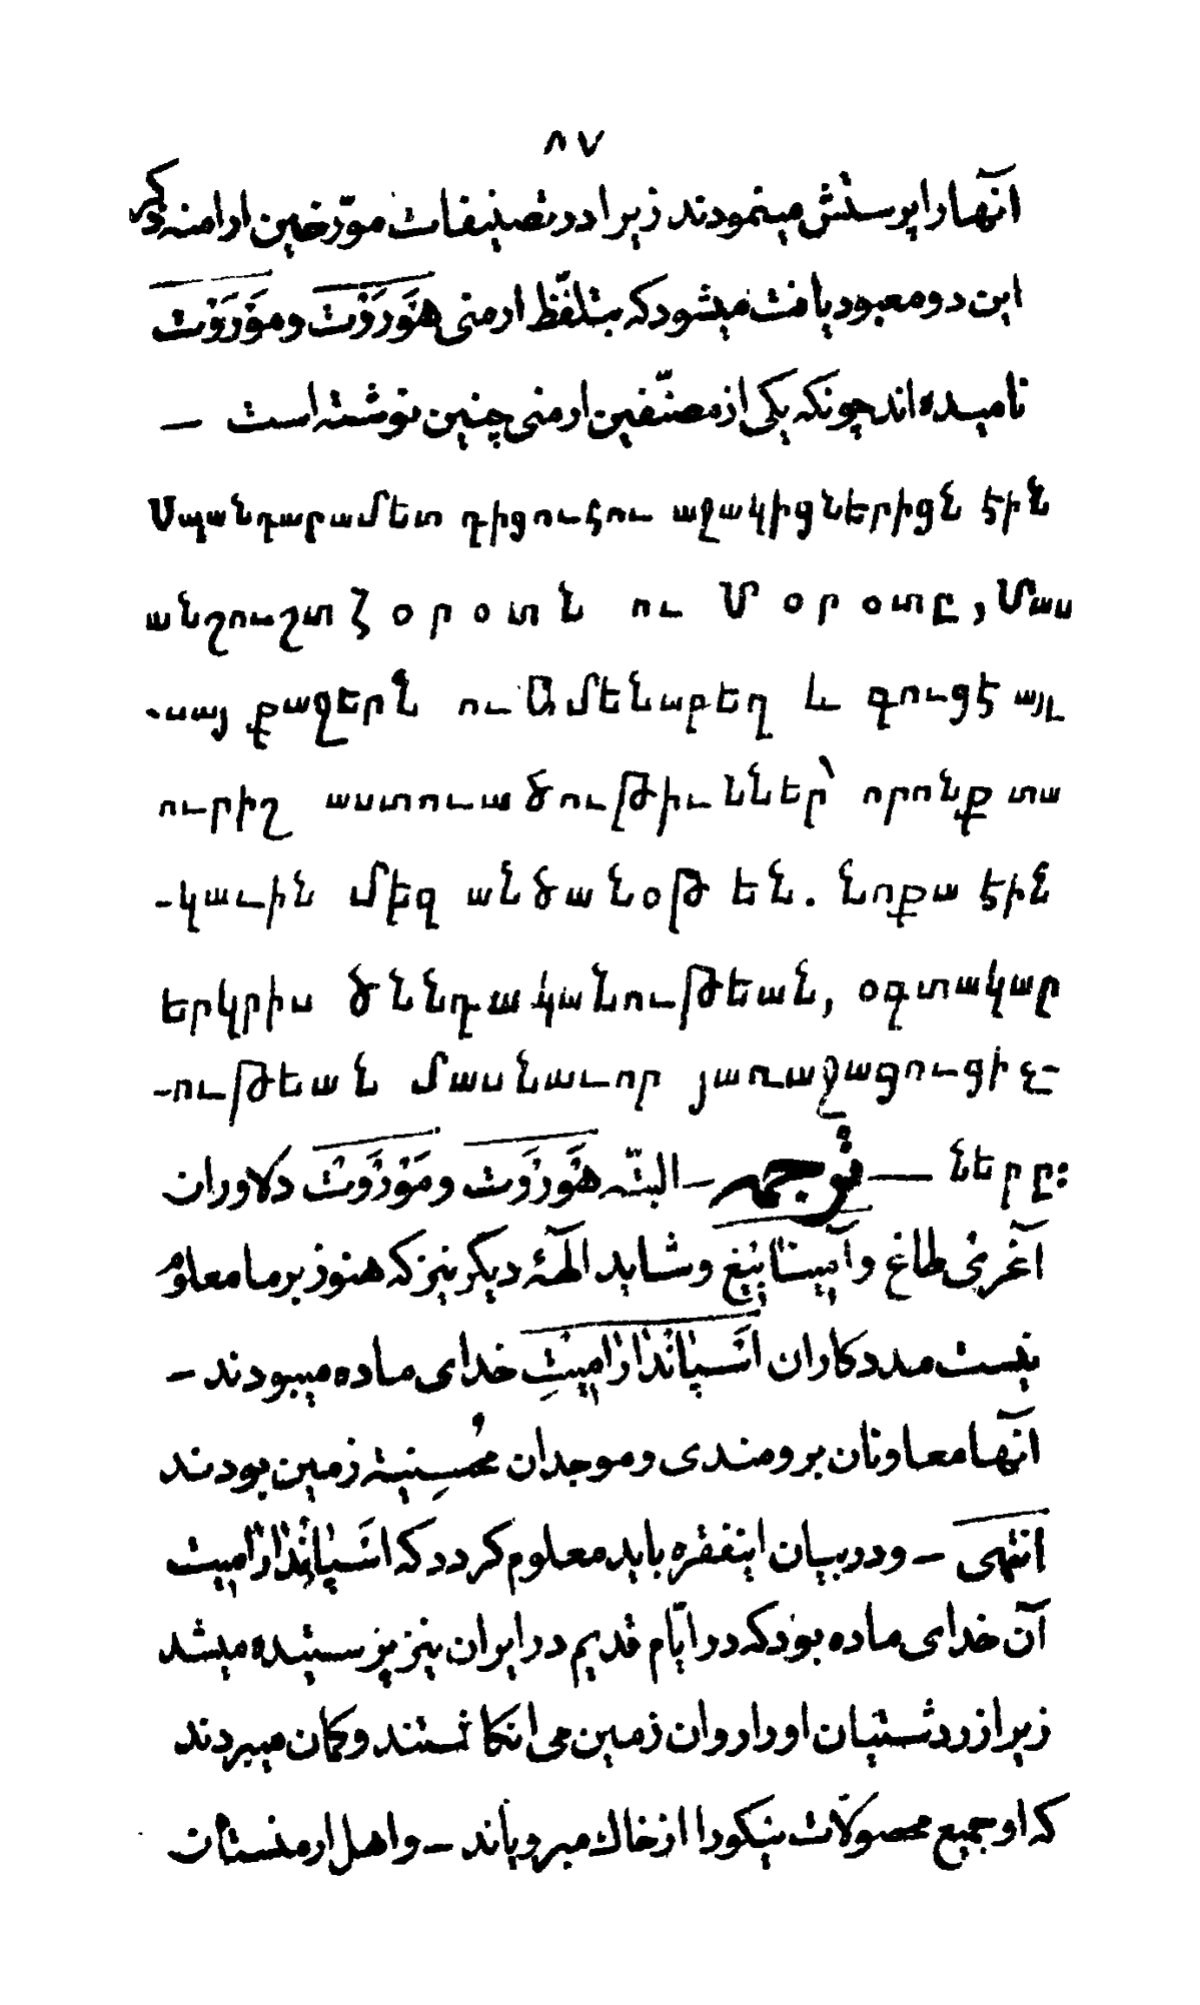 ۸۷
آنها را پرستش مینمودند زیرا در تصنیفات مورّخین ارامنه ذکر
این دو معبود یافت میشود که بتلفّظ ارمنی هَوَرَوَت و مَوَرَوَت
نامیده اند چونکه یکی از مصنّفین ارمنی چنین نوشته است —
Սպանդարամետ դիցուհու աջակիցներիցն էին
անշուշտ Հօրօտն ու Մօրօտը, Մաս
-սայ քաջերն ու Ամենաբեղ և գուցէ այլ
ուրիշ աստուածութիւններ՝ որոնք տա
-կաւին մեզ անծանօթ են. նոքա էին
երկրիս ծննդականութեան, օգտակար
-ութեան մասնաւոր յառաջացուցիչ-
ները: — ترجمه — البتّه هَوَرَوَت و مَوَرَوَت دلاوران
آغری طاغ و آمِینابیغ و شاید الٓههٔ دیگر نیز که هنوز بر ما معلوم
نیست مددکاران اَسْپانْدارامِیتِ خدای ماده میبودند —
آنها معاونان برومندی و موجدان مُحسِنیهٔ زمین بودند
انتهی — و در بیان اینفقره باید معلوم گردد که اَسْپانْدارامِیت
آن خدای ماده بود که در ایّام قدیم در ایران نیز پرستیده میشد
زیرا زردشتیان او را روان زمین می انگاشتند و گمان میبردند
که او جمیع محصولات نیکو را از خاك میرویاند — و اهل ارمنستان